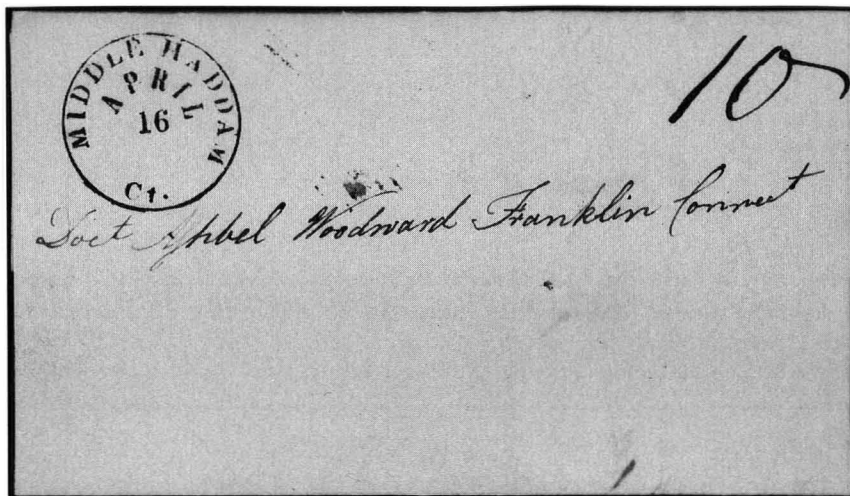 MIDDLE HADDAM
APRIL
16
Ct.
10
Doct Ashbel Woodward Franklin Connect